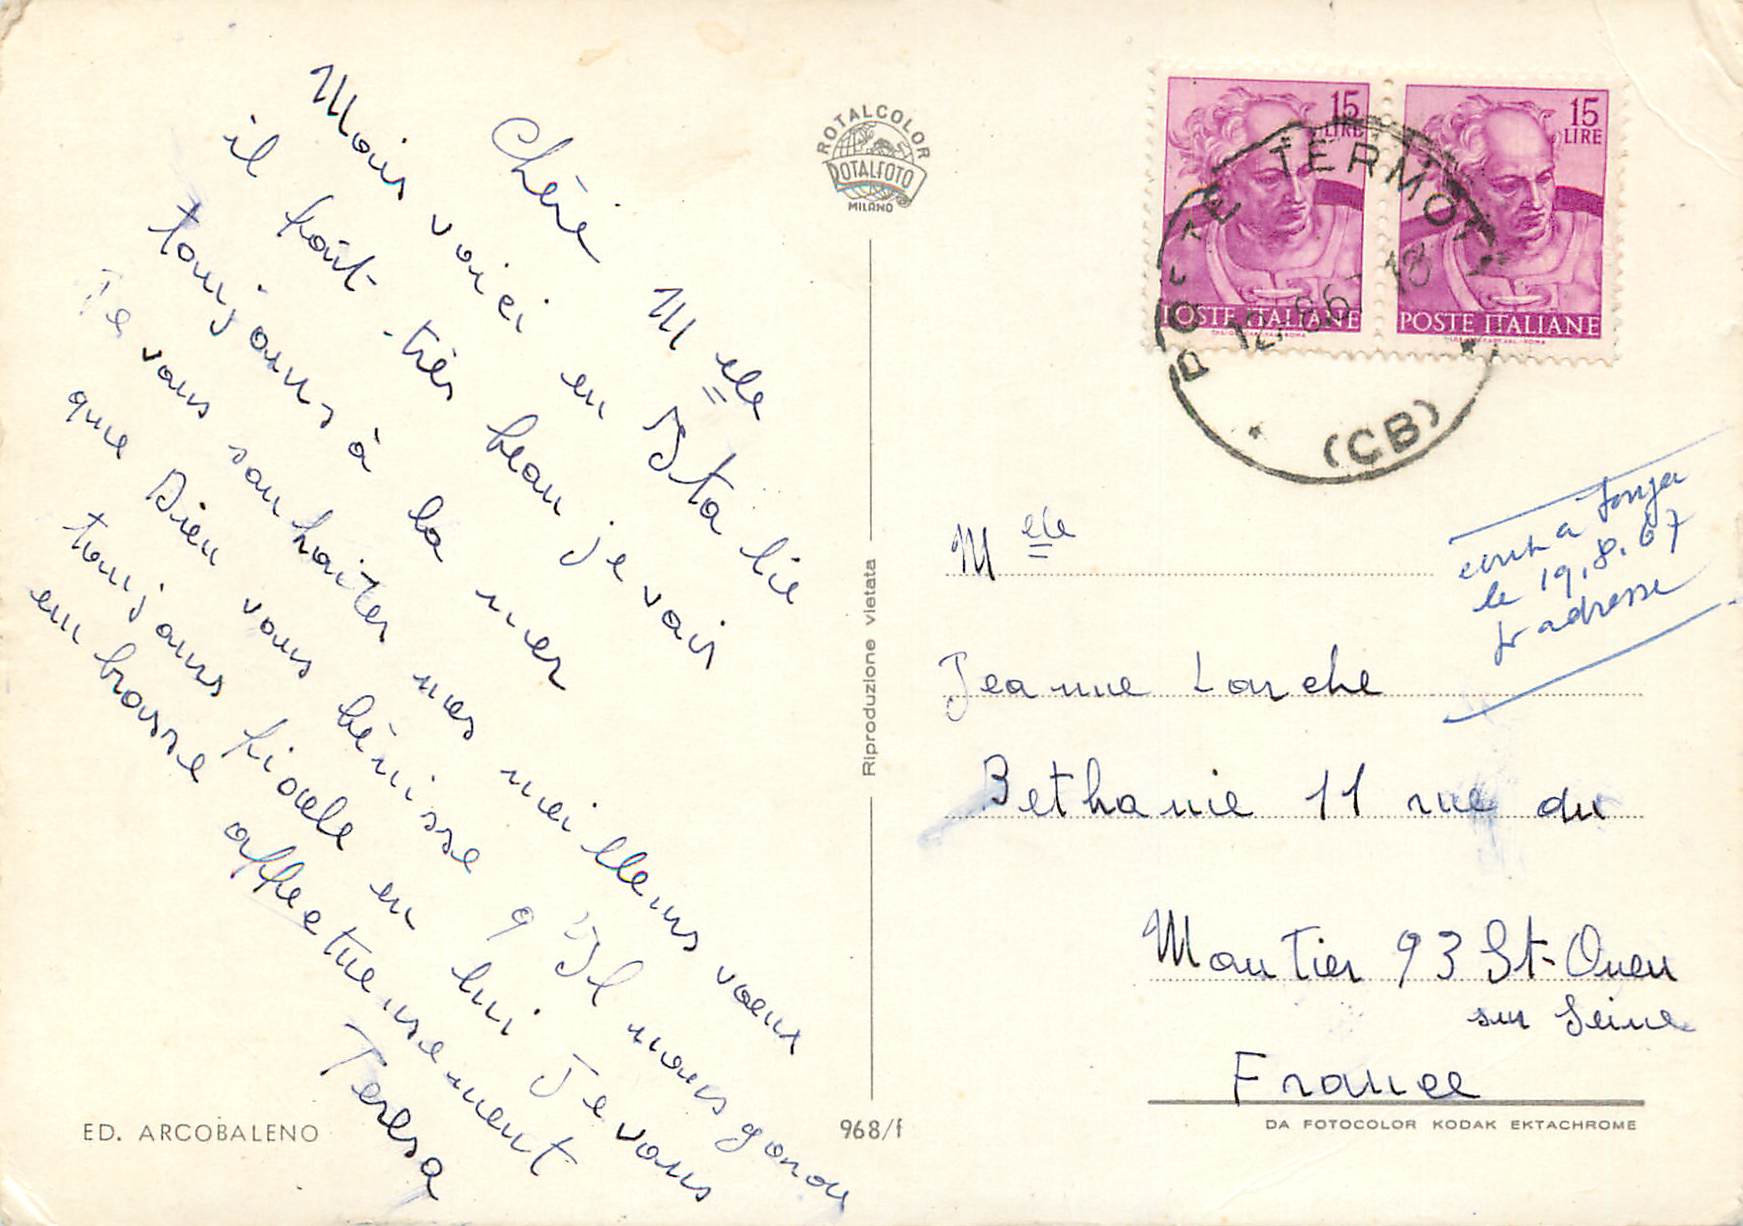 Chère Melle
Mois voici en Italie
il fait très beau je vais
toujours à la mer
Je vous souhaiter mes meilleurs voeux
que Dieu vous bénisse q Il nous garde
toujours fidele en lui Je vous
embrasse affectueusement
Teresa
ED. ARCOBALENO
ROTALCOLOR
ROTALFOTO
MILANO
Riproduzione vietata
968/f
15
LIRE
POSTE ITALIANE
15
LIRE
POSTE ITALIANE
TERMOLI
(CB)
le 19.8.67
adresse
Melle
Jeanne Larche
Bethanie 11 rue du
Moutier 93 St-Ouen
sur Seine
France
DA FOTOCOLOR KODAK EKTACHROME